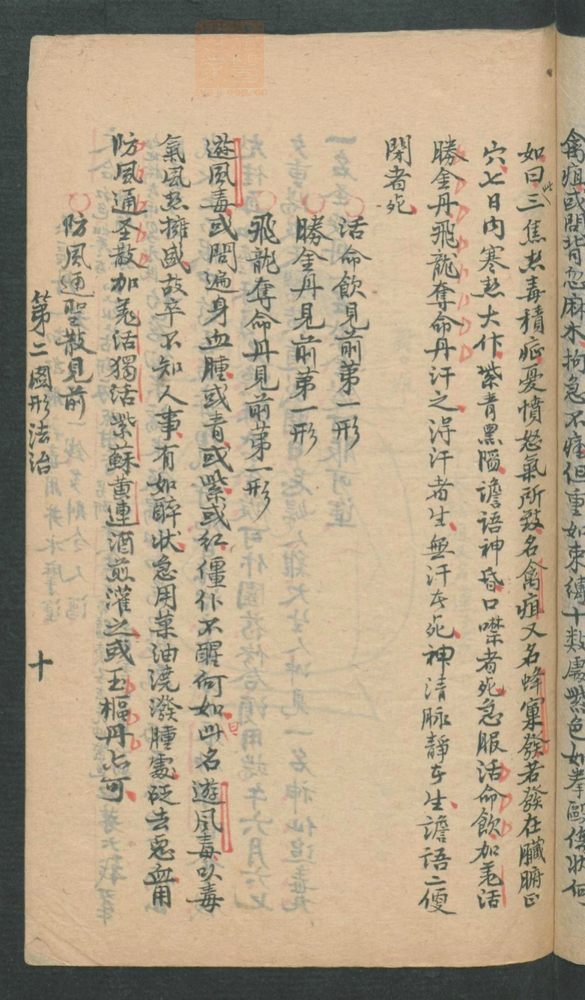 禽疽或問背忽麻木拘急不痛但重如束縛十數處紫色如拳毆傷狀何
如曰此三焦热毒積症憂憤怒氣所致名禽疽又名蜂窠發若發在臟腑正
穴七日内寒热大作紫青黑腦譫語神昏口噤者死急服活命飲加羗活
勝金丹飛龍奪命丹汗之得汗者生無汗者死神清脉靜者生譫語二便
閉者死
活命飲見前第一形
勝金丹見前第一形
飛龍奪命丹見前第一形
遊風毒或問遍身血腫或青或紫或紅僵仆不醒何如曰此名遊風毒以毒
氣風热擁盛故卒不知人事有如醉狀急用菜油澆潑腫處砭去惡血用
防風通圣散加羗活獨活紫蘇黄連酒煎灌之或玉樞丹亦可
防風通聖散見前
第二圖形法治
十